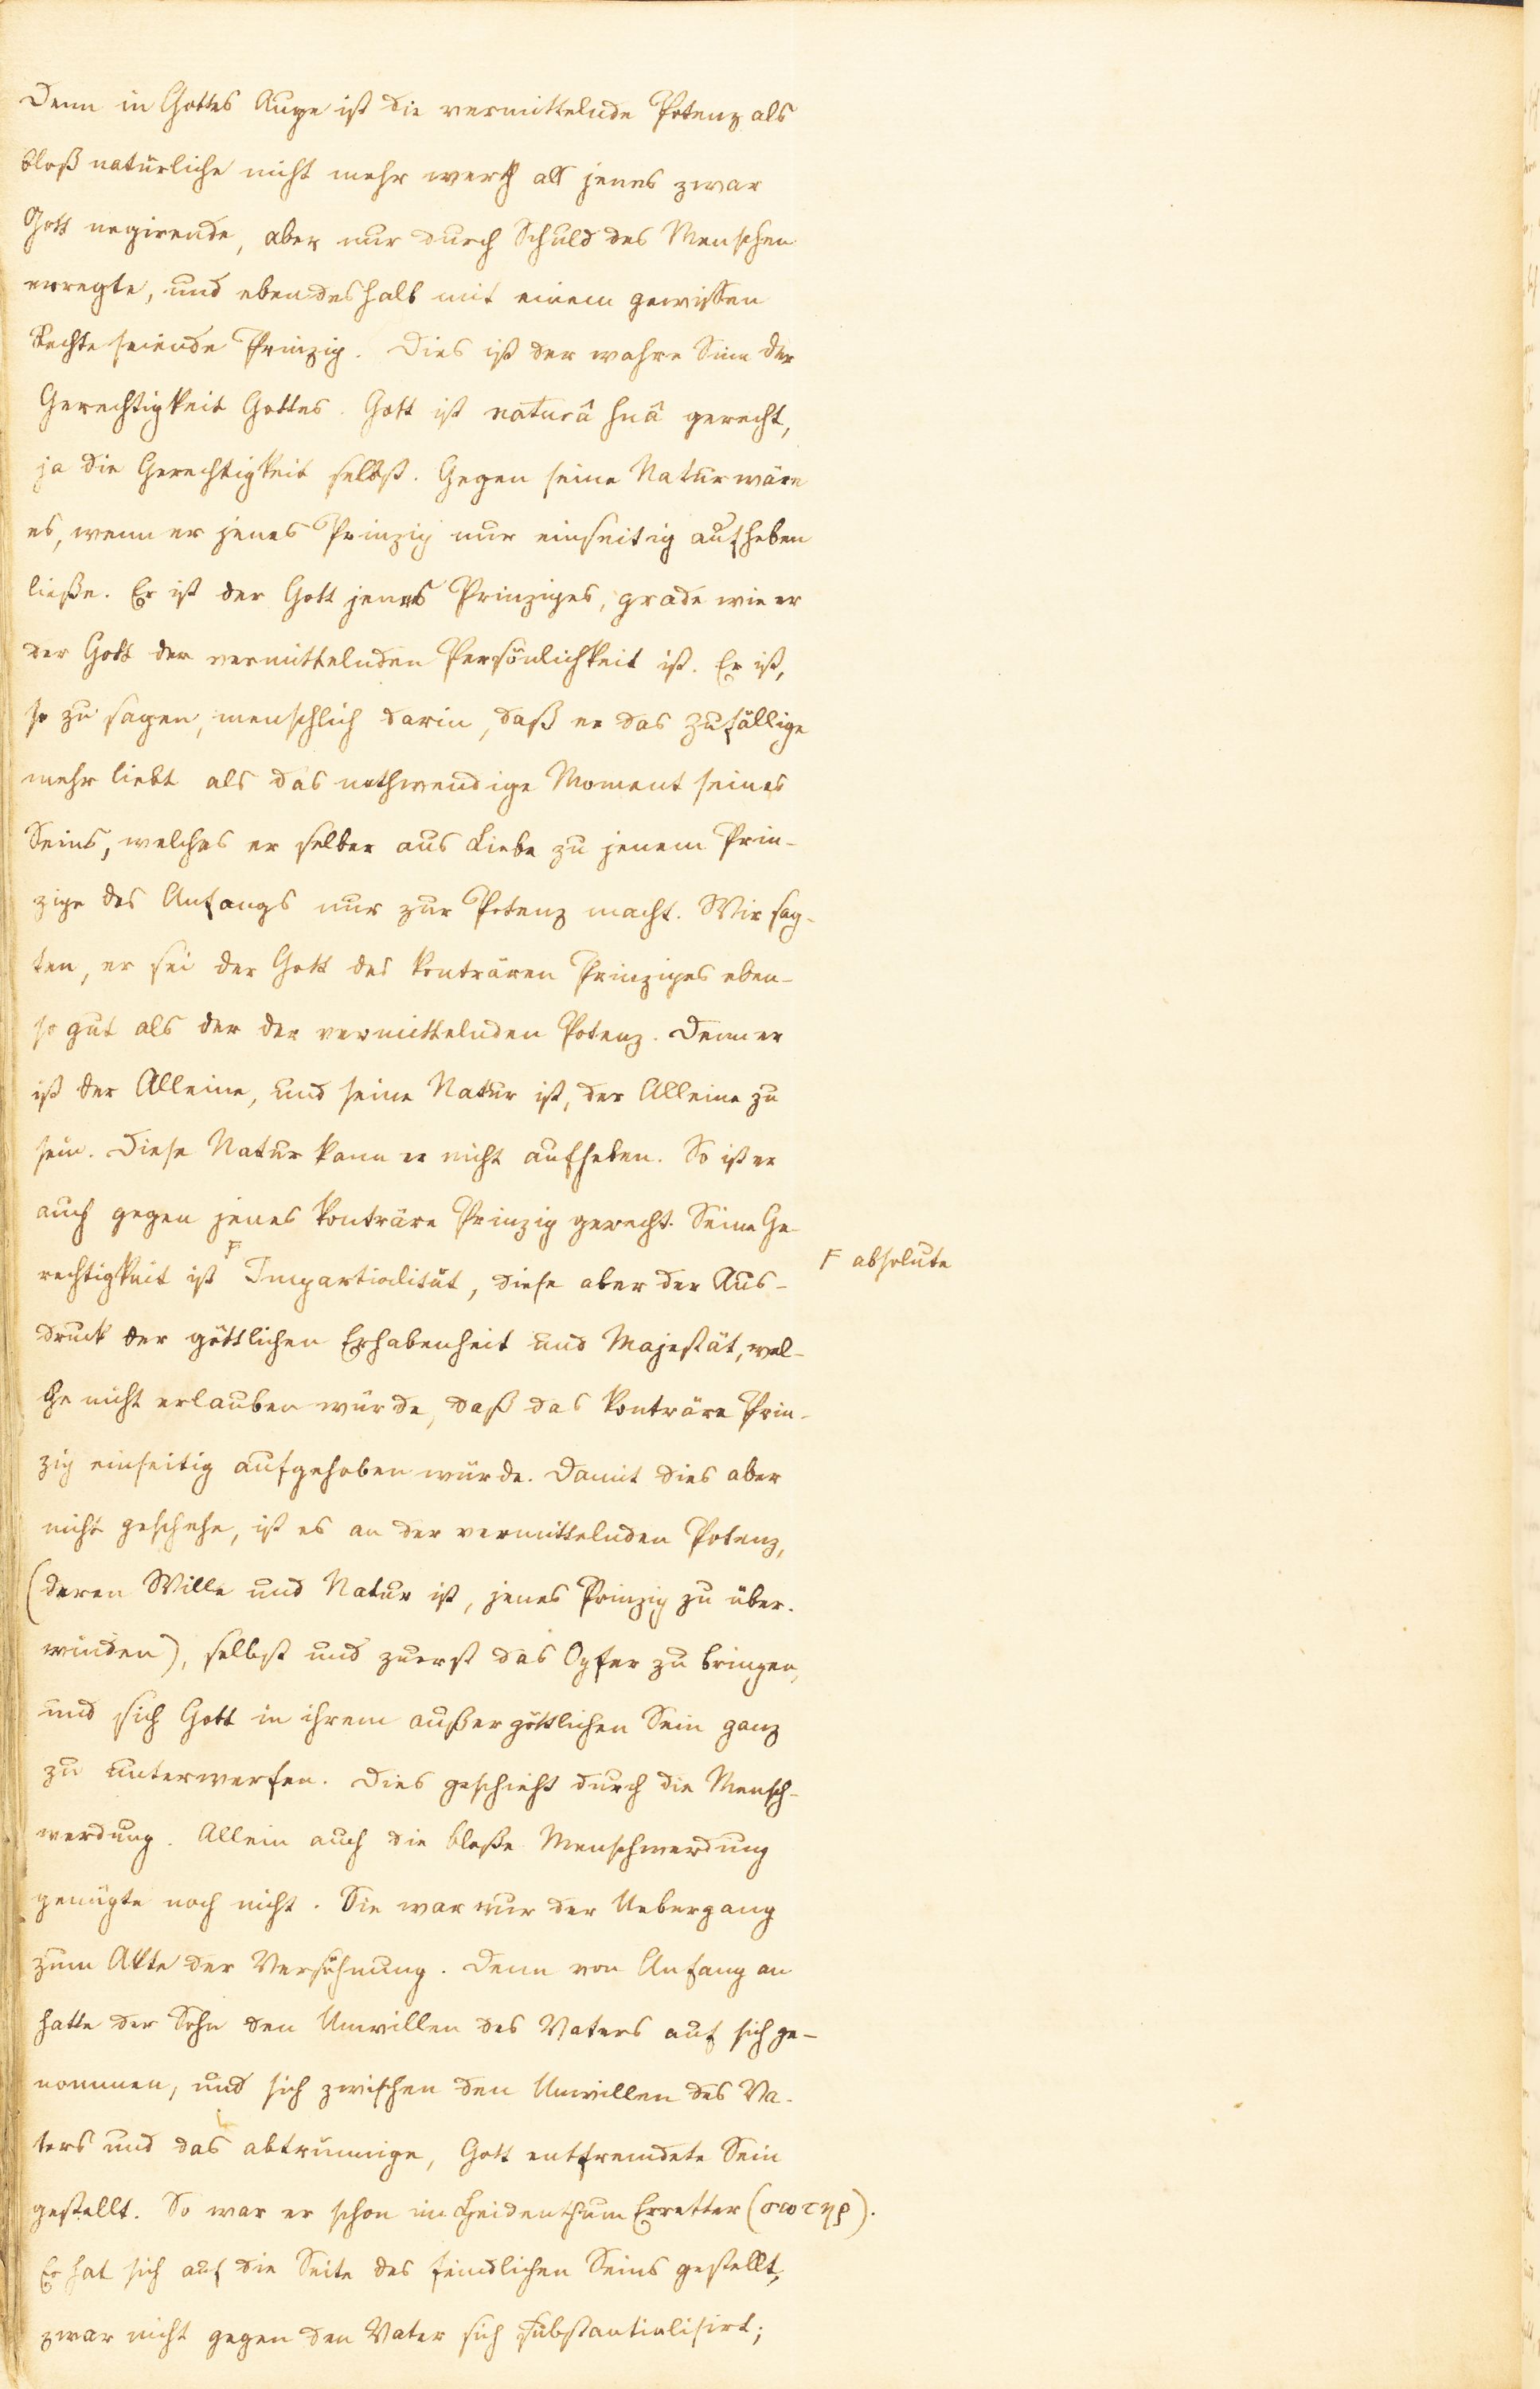 Denn in Gottes Auge ist die vermittelnde Potenz als
bloß natürliche nicht mehr werth als jenes zwar
Gott negirende, aber nur durch Schuld des Menschen
erregte, und ebendeshalb mit einem gewissen
Rechte seiende Prinzip. Dies ist der wahre Sinn der
Gerechtigkeit Gottes. Gott ist naturâ suâ gerecht,
ja die Gerechtigkeit selbst. Gegen seine Natur wäre
es, wenn er jenes Prinzip nur einseitig aufheben
ließe. Er ist der Gott jenes Prinzipes, grade wie er
der Gott der vermittelnden Persönlichkeit ist. Er ist,
so zu sagen, menschlich darin, daß er das zufällige
mehr liebt als das nothwendige Moment seines
Seins, welches er selber aus Liebe zu jenem Prin-
zipe des Anfangs nur zur Potenz macht. Wir sag-
ten, er sei der Gott des konträren Prinzipes eben-
so gut als der der vermittelnden Potenz. Denn er
ist der Alleine, und seine Natur ist, der Alleine zu
sein. Diese Natur kann er nicht aufheben. So ist er
auch gegen jenes konträre Prinzip gerecht. Seine Ge-
rechtigkeit ist F Impartialität, diese aber der Aus-
F absolute
druck der göttlichen Erhabenheit und Majestät, wel-
che nicht erlauben würde, daß das konträre Prin-
zip einseitig aufgehoben würde. Damit dies aber
nicht geschehe, ist es an der vermittelnden Potenz,
(deren Wille und Natur ist, jenes Prinzip zu über-
winden), selbst und zuerst das Opfer zu bringen,
und sich Gott in ihrem außergöttlichen Sein ganz
zu unterwerfen. Dies geschieht durch die Mensch-
werdung. Allein auch die bloße Menschwerdung
genügte noch nicht. Sie war nur der Uebergang
zum Akte der Versöhnung. Denn von Anfang an
hatte der Sohn den Unwillen des Vaters auf sich ge-
nommen, und sich zwischen den Unwillen des Va-
ters und das abtrünnige, Gott entfremdete Sein
gestellt. So war er schon im Heidenthum Erretter (σωτηρ).
Er hat sich auf die Seite des feindlichen Seins gestellt,
zwar nicht gegen den Vater sich substantialisirt;